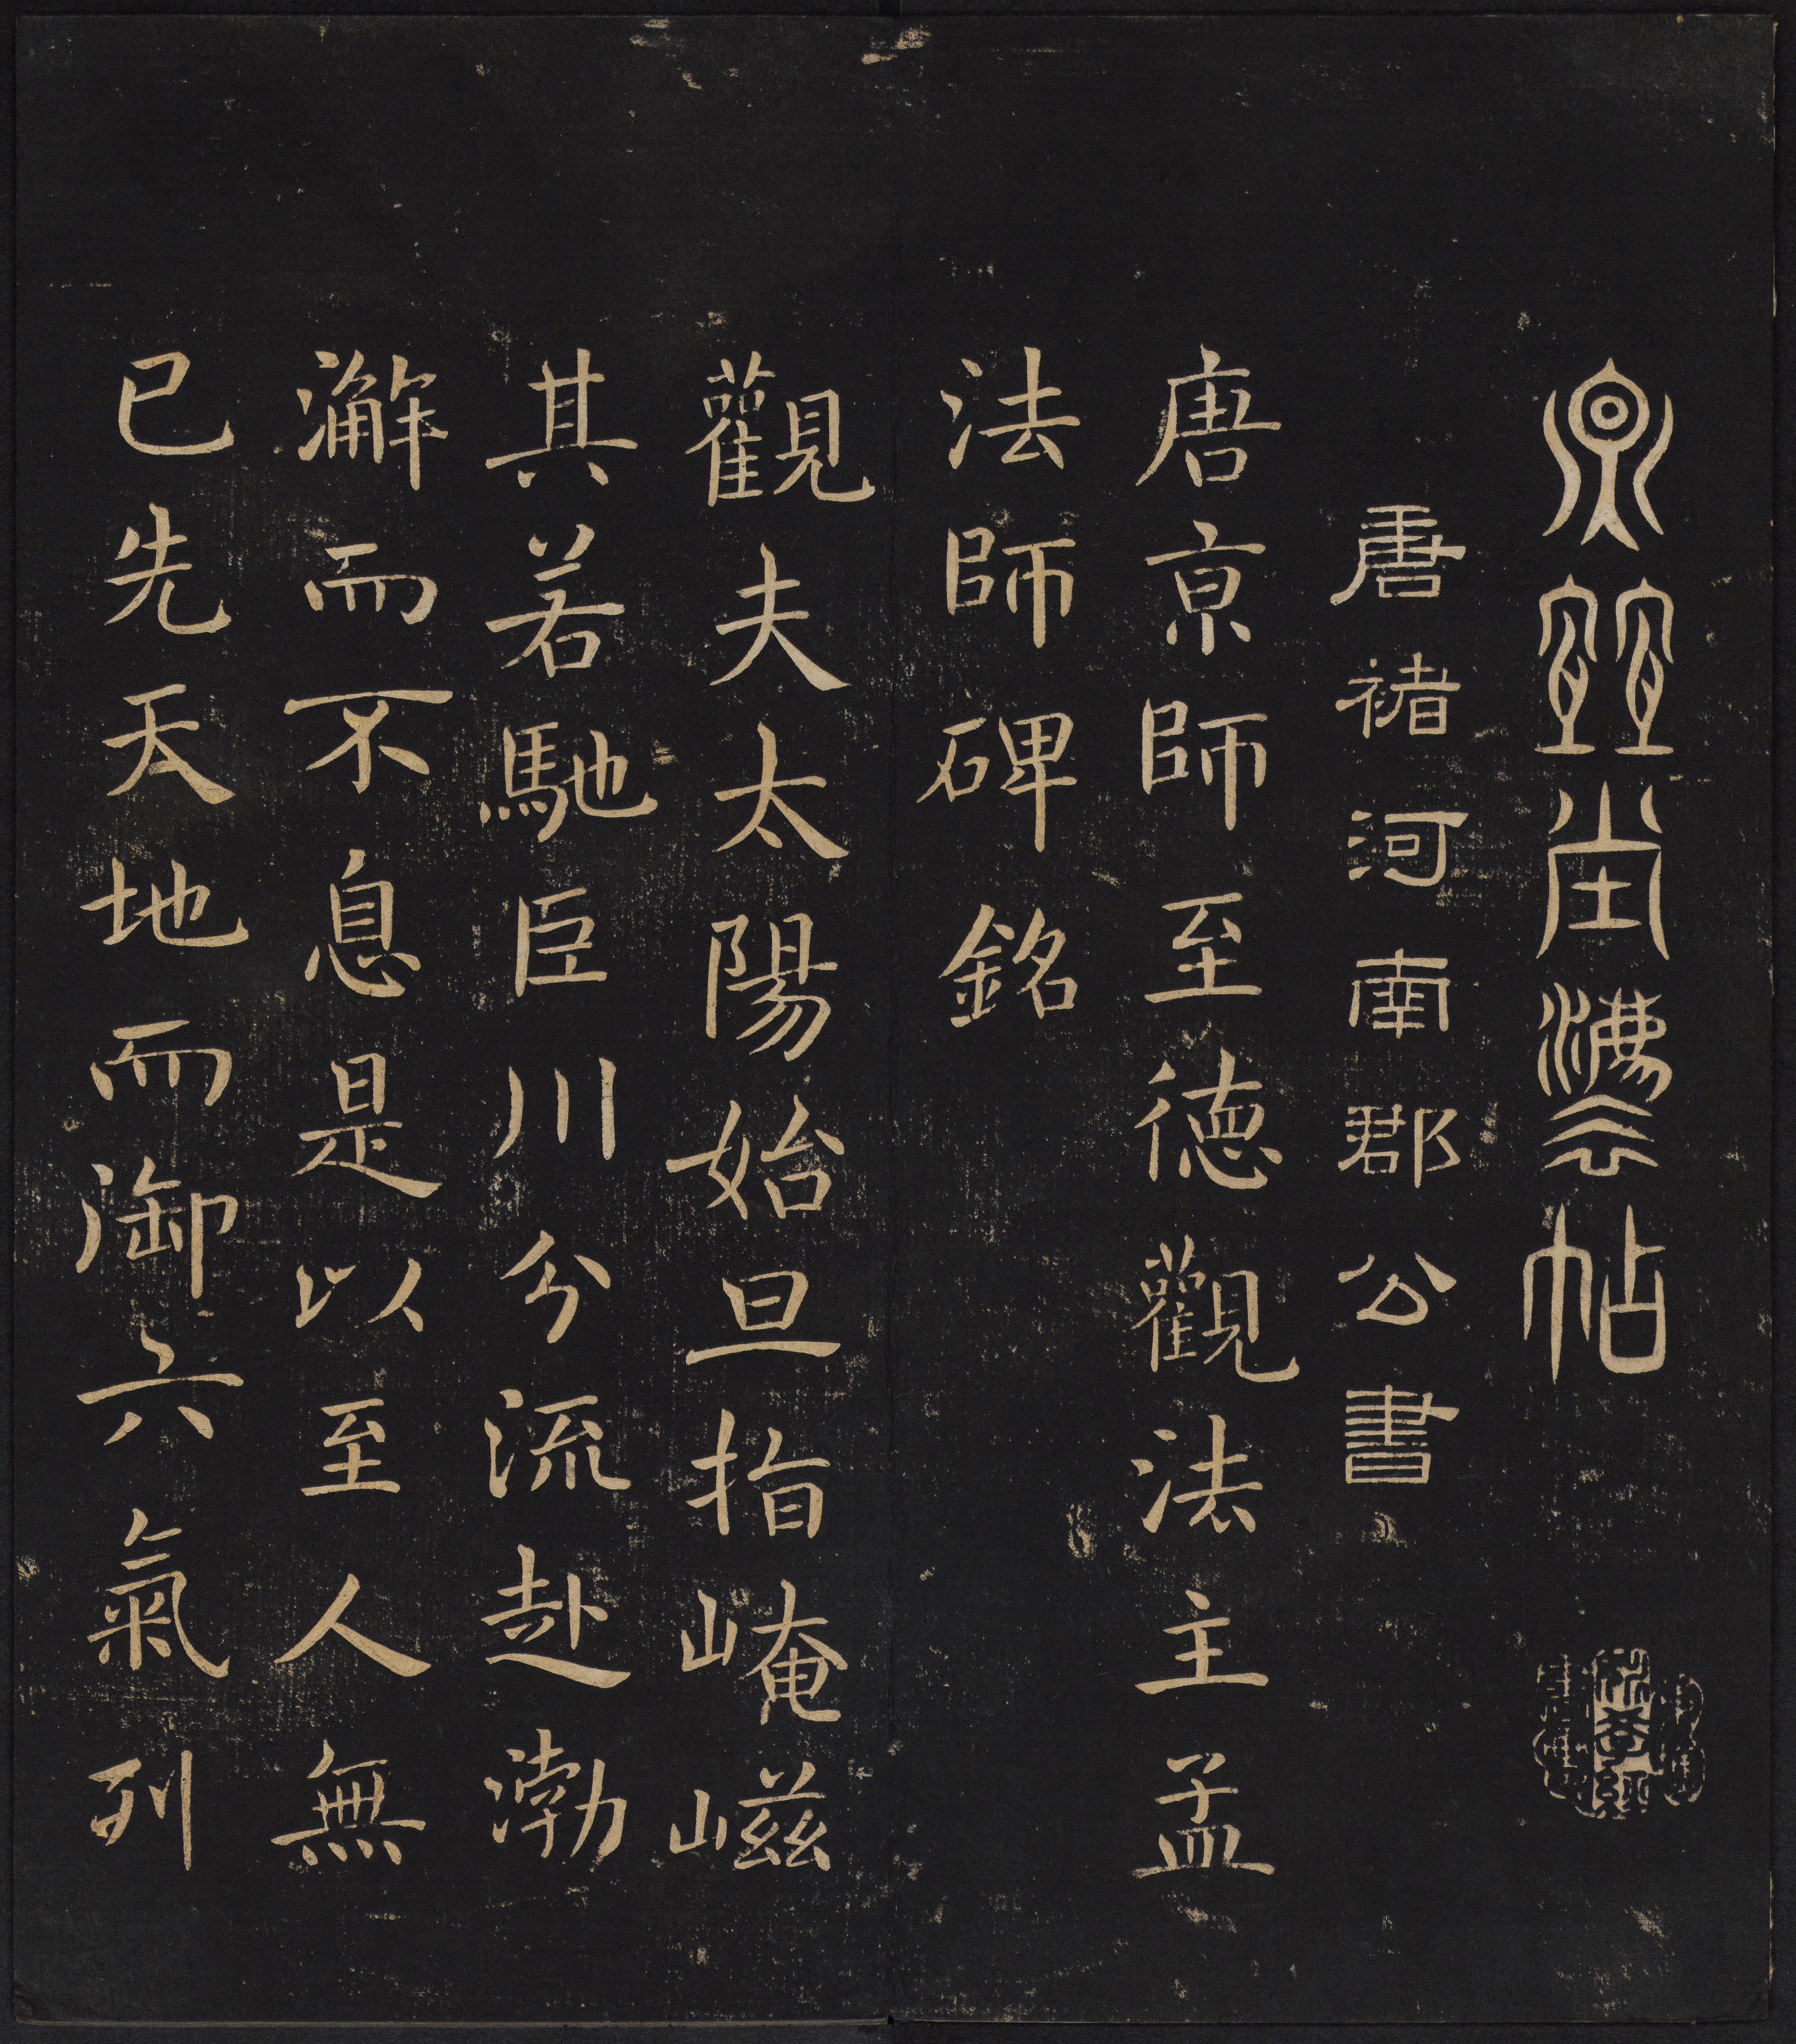 堂灋帖
唐褚河南郡公書
唐亰師至德觀法主孟
法師碑銘
觀夫太陽始旦指崦嵫
其若馳巨川分流赴渤
澥而不息是以至人無
已先天地而御六氣列